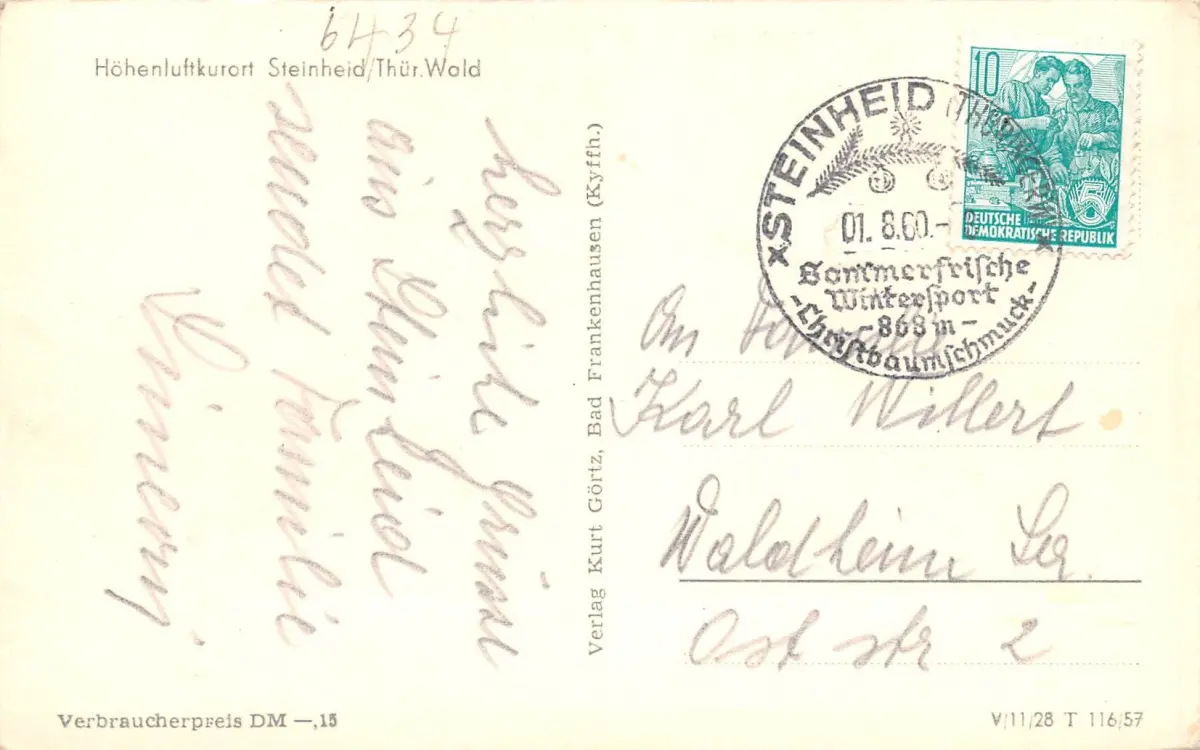 6434
Höhenluftkurort Steinheid/Thür. Wald
herzliche Grüsse
aus Steinheid
sendet Familie
Verlag Kurt Görtz, Bad Frankenhausen (Kyffh.)
STEINHEID (THÜRINGERW.)
01. 8.60.-
Sommerfrische
Wintersport
-868m-
-Christbaumschmuck-
10
5
DEUTSCHE
DEMOKRATISCHE REPUBLIK
An Familie
Karl Willert
Waldheim Sa.
Ost str 2
Verbraucherpreis DM —,15
V/11/28 T 116/57